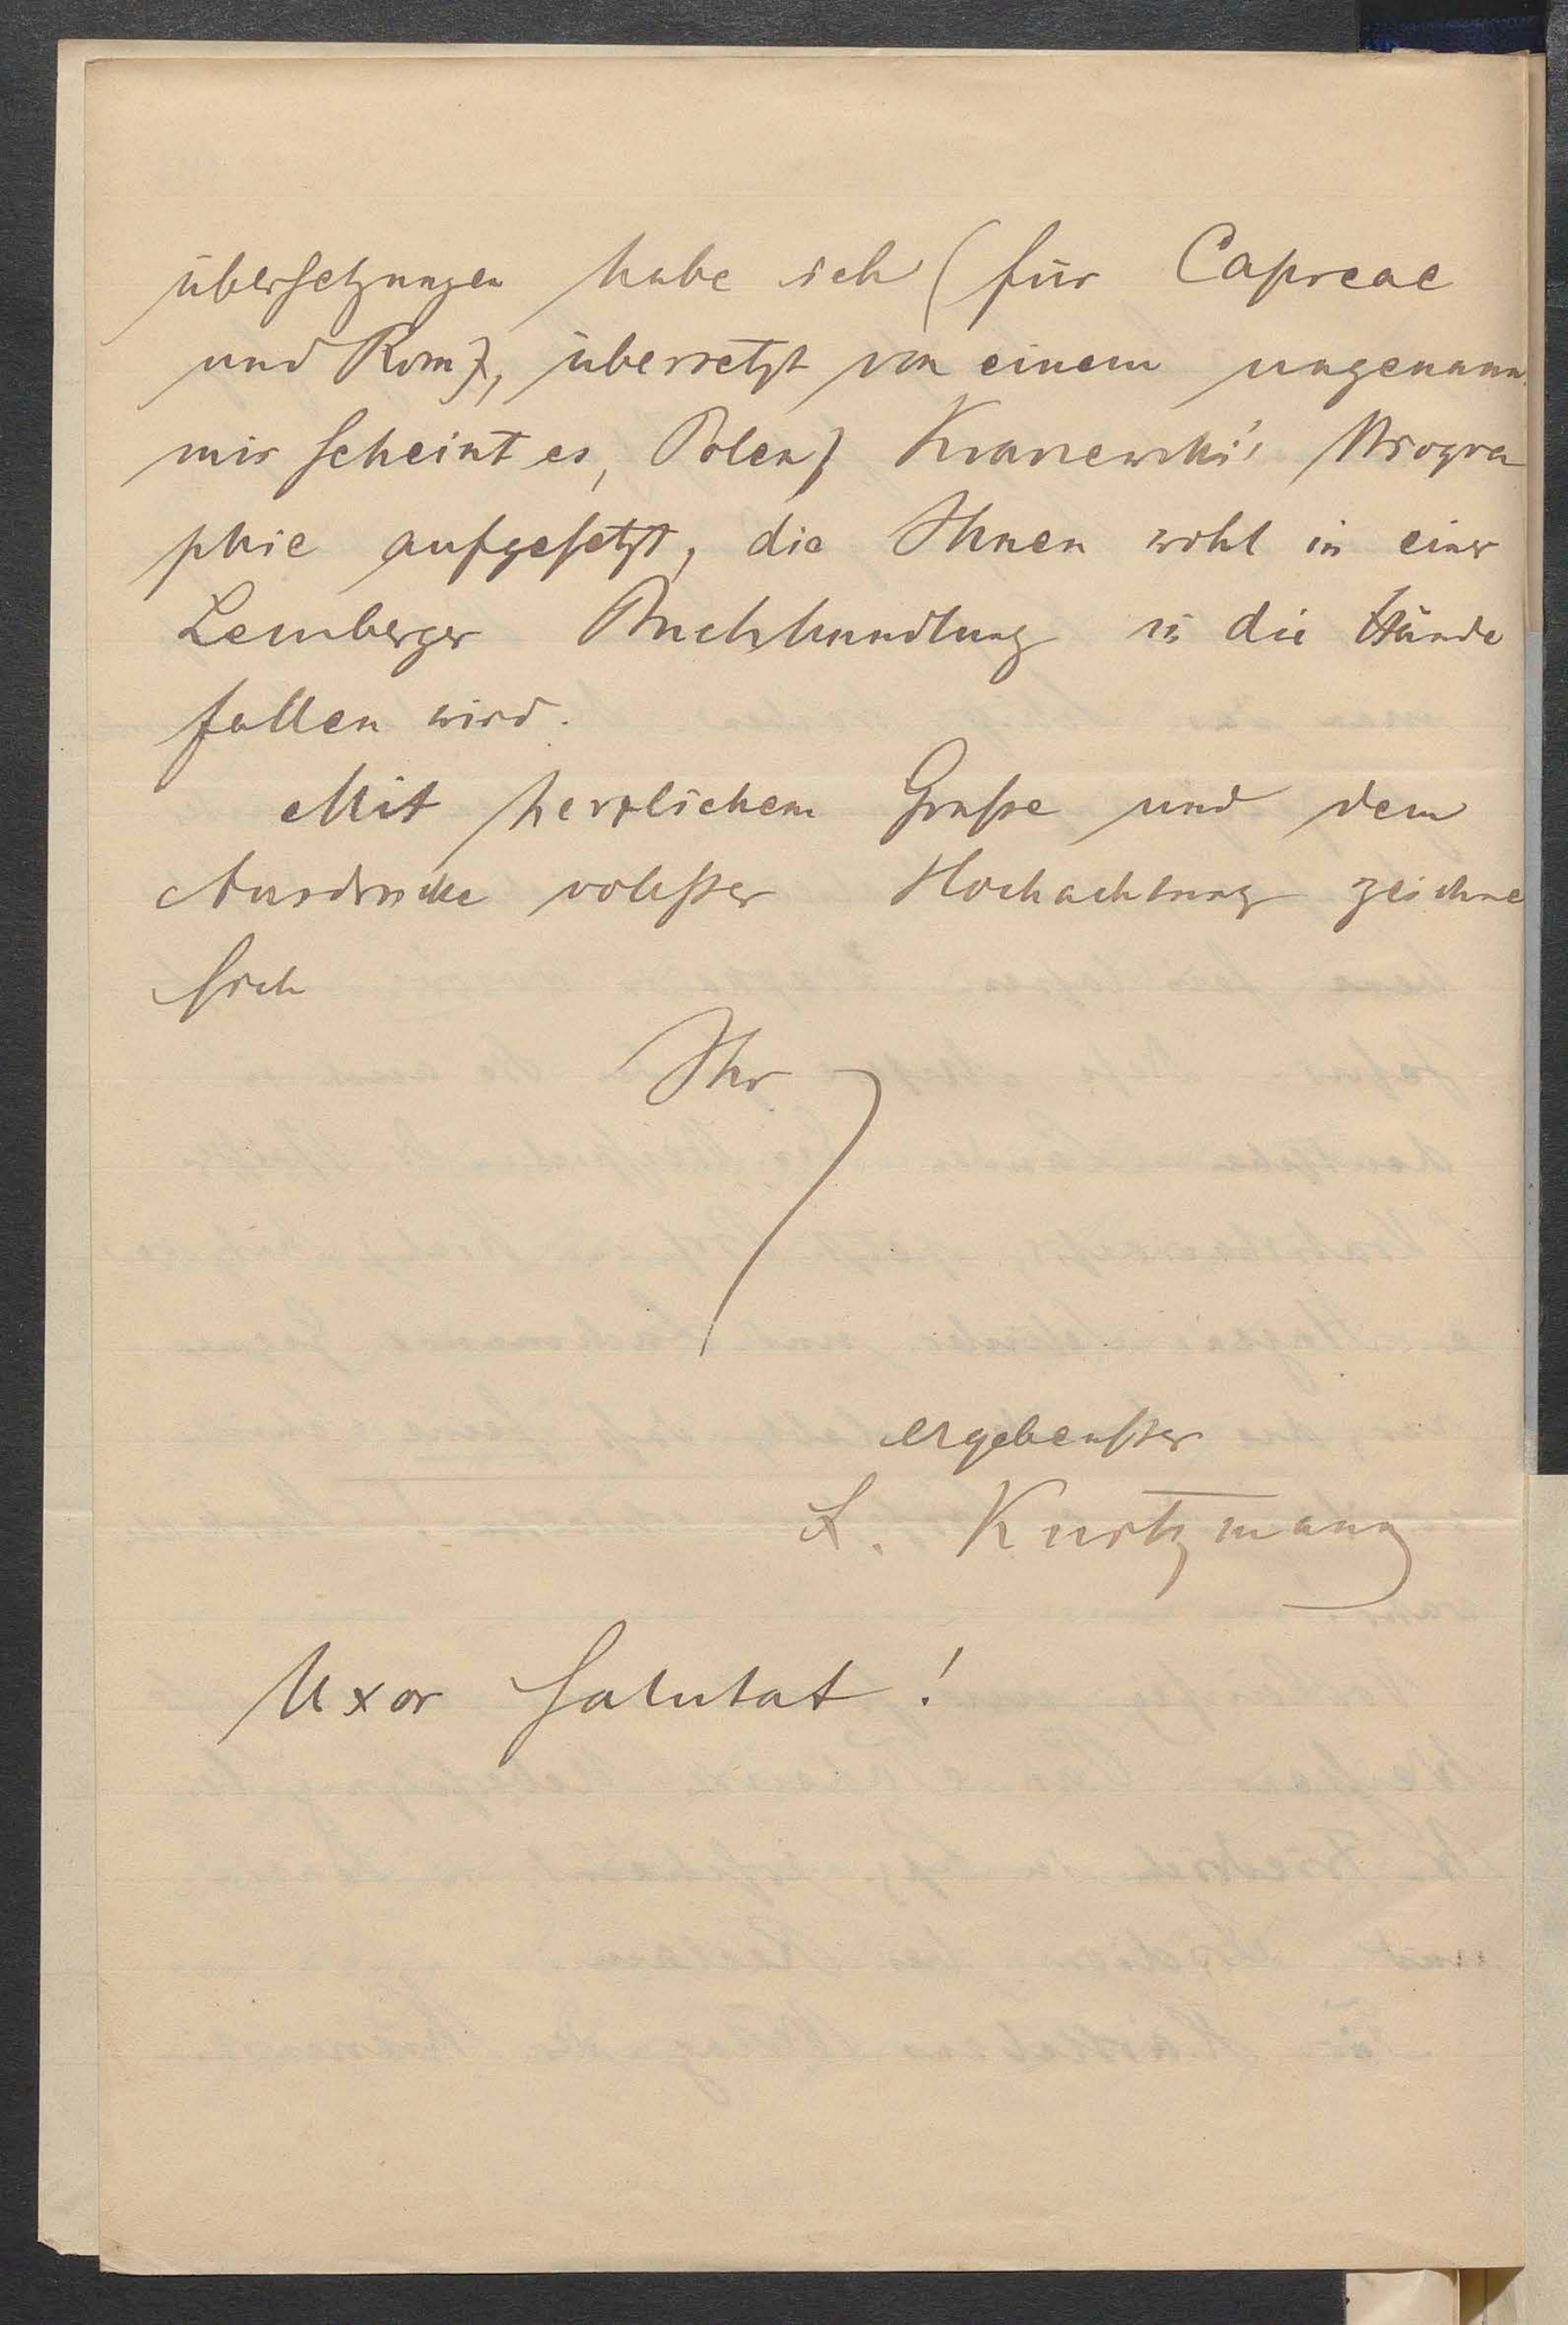 übersetzungen habe ich (für Capreae
und Rom), übersetzt von einem ungenann
mir scheint es, Polen) Krasewski's Biogra
phie aufgesetzt, die Ihnen wohl in einer
Lemberger Buchhandlung in die Hände
fallen wird.
Mit herzlichem Gruße und dem
Ausdrucke vollster Hochachtung zeichne
sich
Ihr
ergebenster
L. Kurtzmann
Uxor salutat!